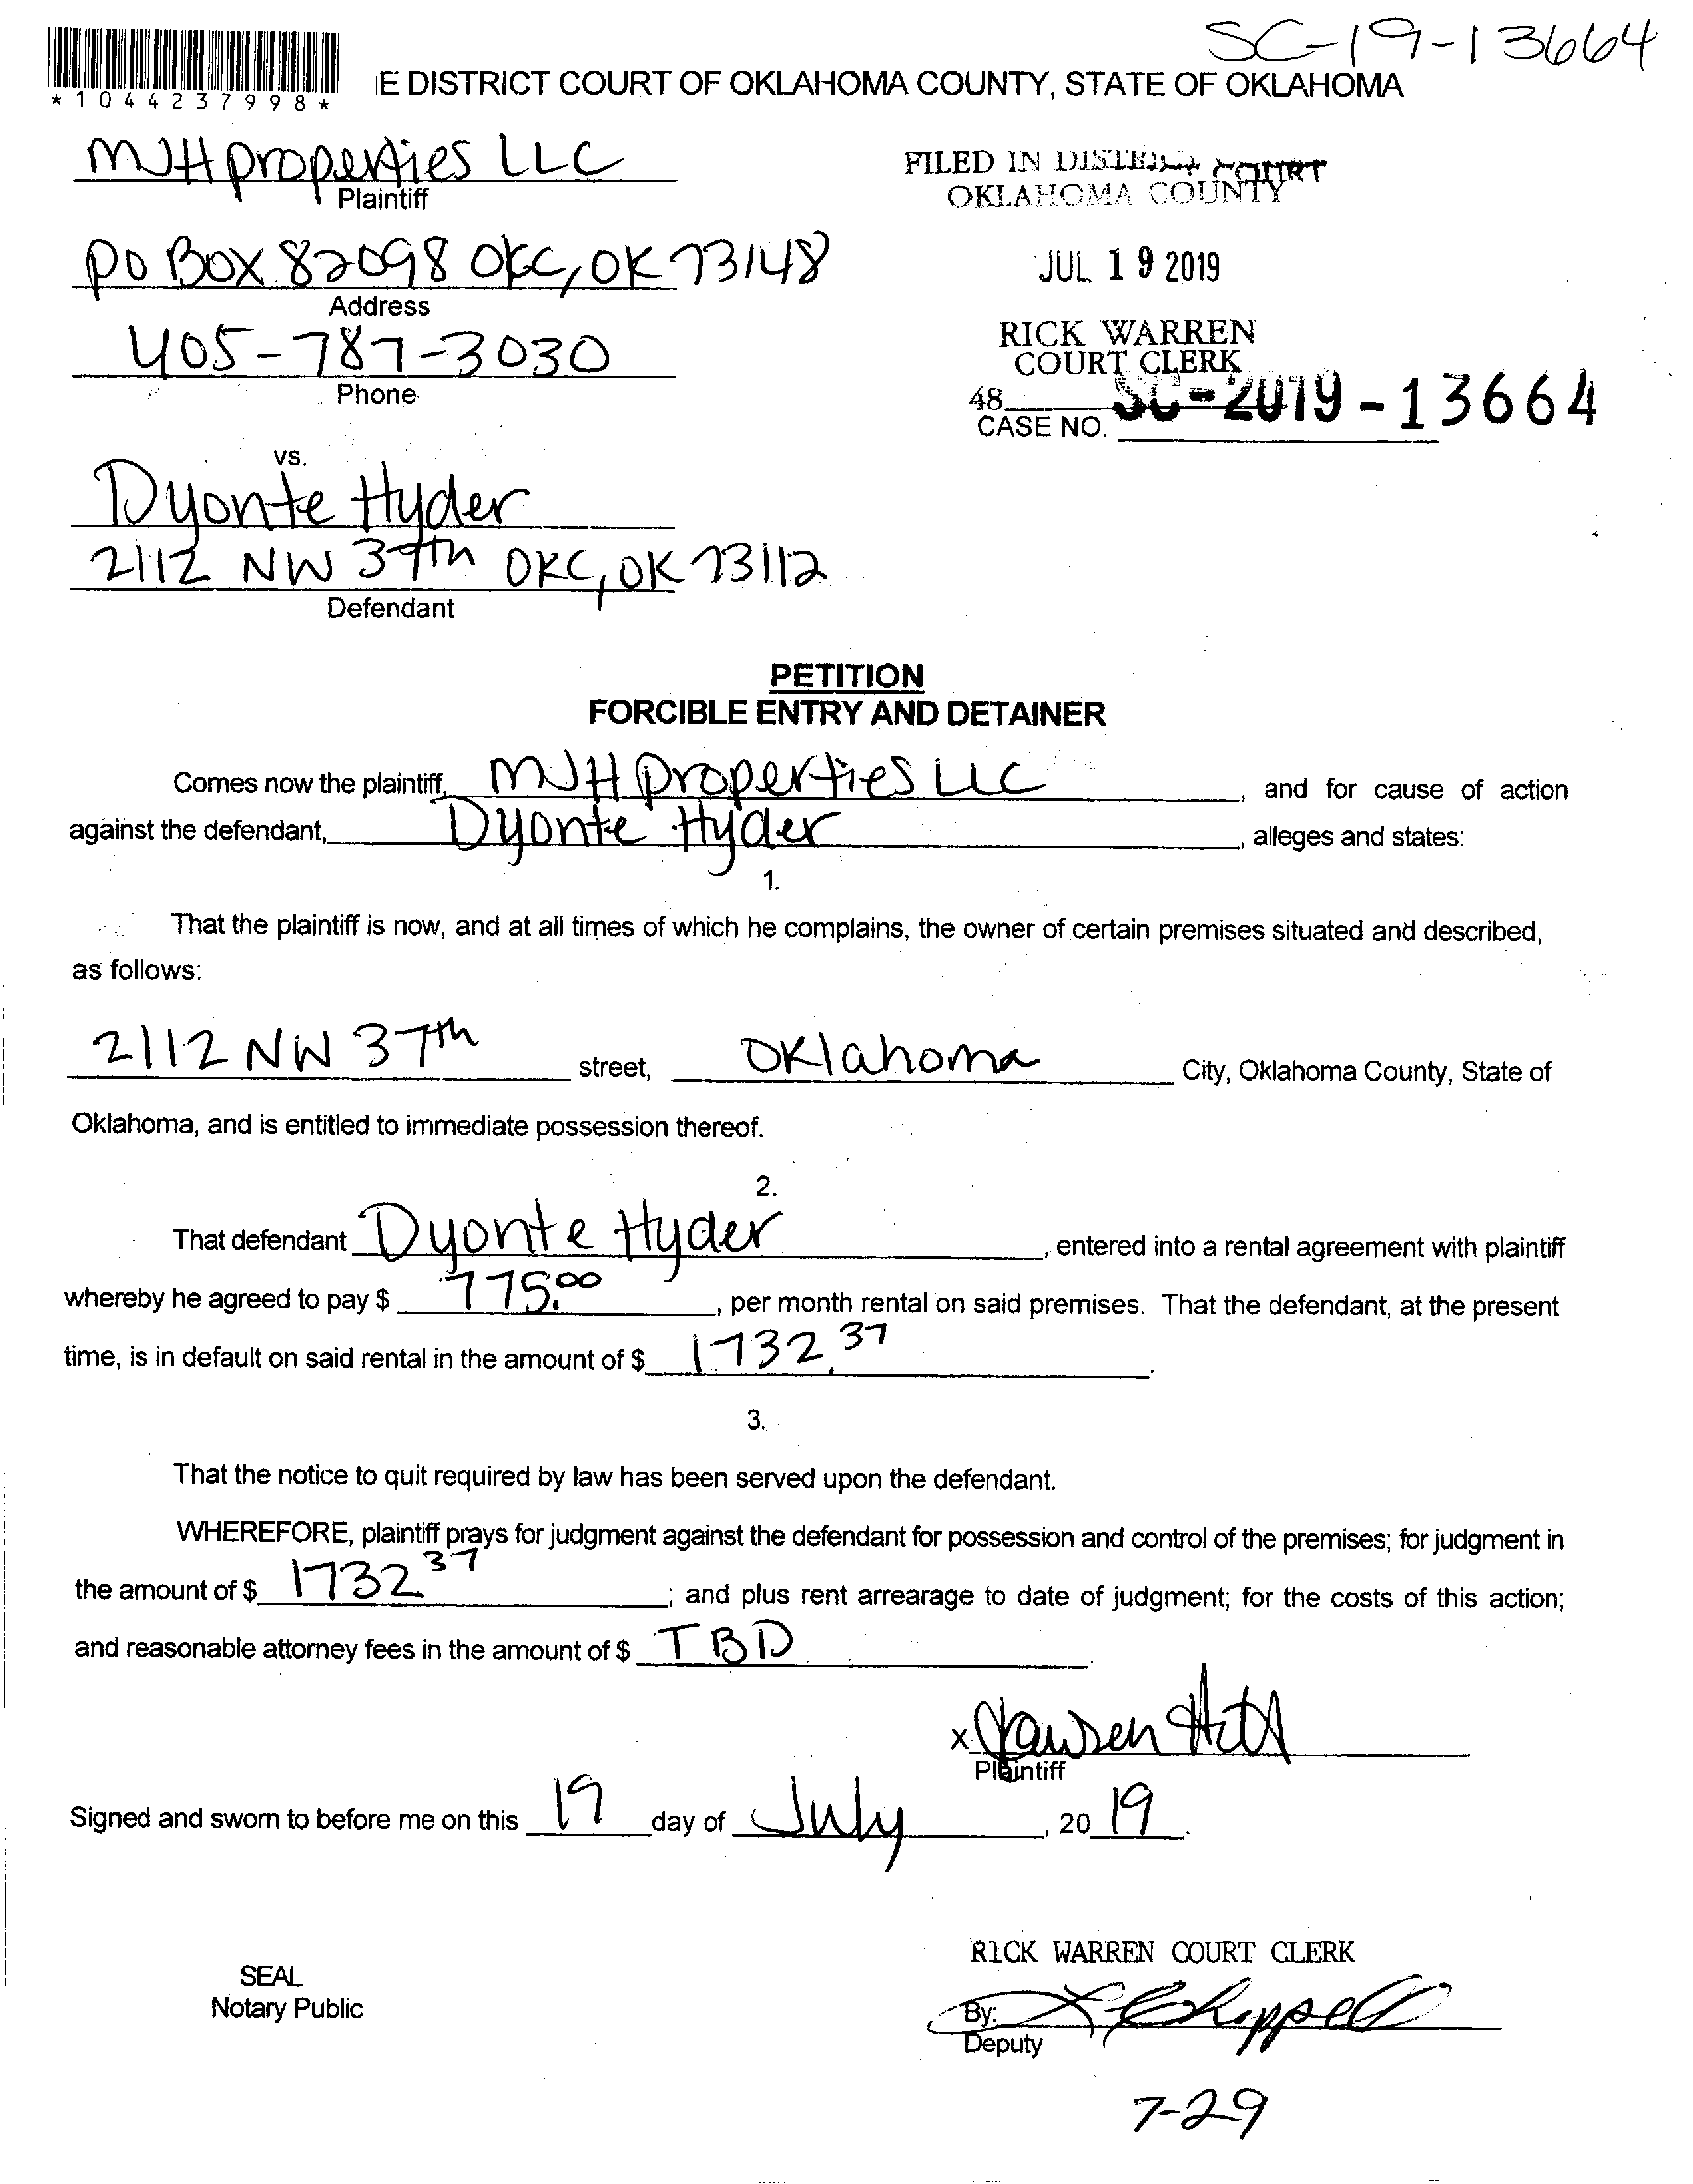 SC-19-13664
*1044237998*
E DISTRICT COURT OF OKLAHOMA COUNTY, STATE OF OKLAHOMA
MJH properties LLC
Plaintiff
FILED IN DISTRICT COURT
OKLAHOMA COUNTY
PO BOX 82098 OKC, OK 73148
Address
JUL 19 2019
405-787-3030
Phone
RICK WARREN
COURT CLERK
48
CASE NO. SC-2019-13664
vs.
Dyonte Hyder
2112 NW 37th OKC, OK 73112
Defendant
PETITION
FORCIBLE ENTRY AND DETAINER
Comes now the plaintiff, MJH Properties LLC, and for cause of action
against the defendant, Dyonte Hyder, alleges and states:
1.
That the plaintiff is now, and at all times of which he complains, the owner of certain premises situated and described,
as follows:
2112 NW 37th street, Oklahoma City, Oklahoma County, State of
Oklahoma, and is entitled to immediate possession thereof.
2.
That defendant Dyonte Hyder, entered into a rental agreement with plaintiff
whereby he agreed to pay $ 775.00, per month rental on said premises. That the defendant, at the present
time, is in default on said rental in the amount of $ 1732.37.
3.
That the notice to quit required by law has been served upon the defendant.
WHEREFORE, plaintiff prays for judgment against the defendant for possession and control of the premises; for judgment in
the amount of $ 1732 37; and plus rent arrearage to date of judgment; for the costs of this action;
and reasonable attorney fees in the amount of $ TBD.
x
Plaintiff
Signed and sworn to before me on this 19 day of July, 20 19.
RICK WARREN COURT CLERK
SEAL
Notary Public
By: Chappell
Deputy
7-29